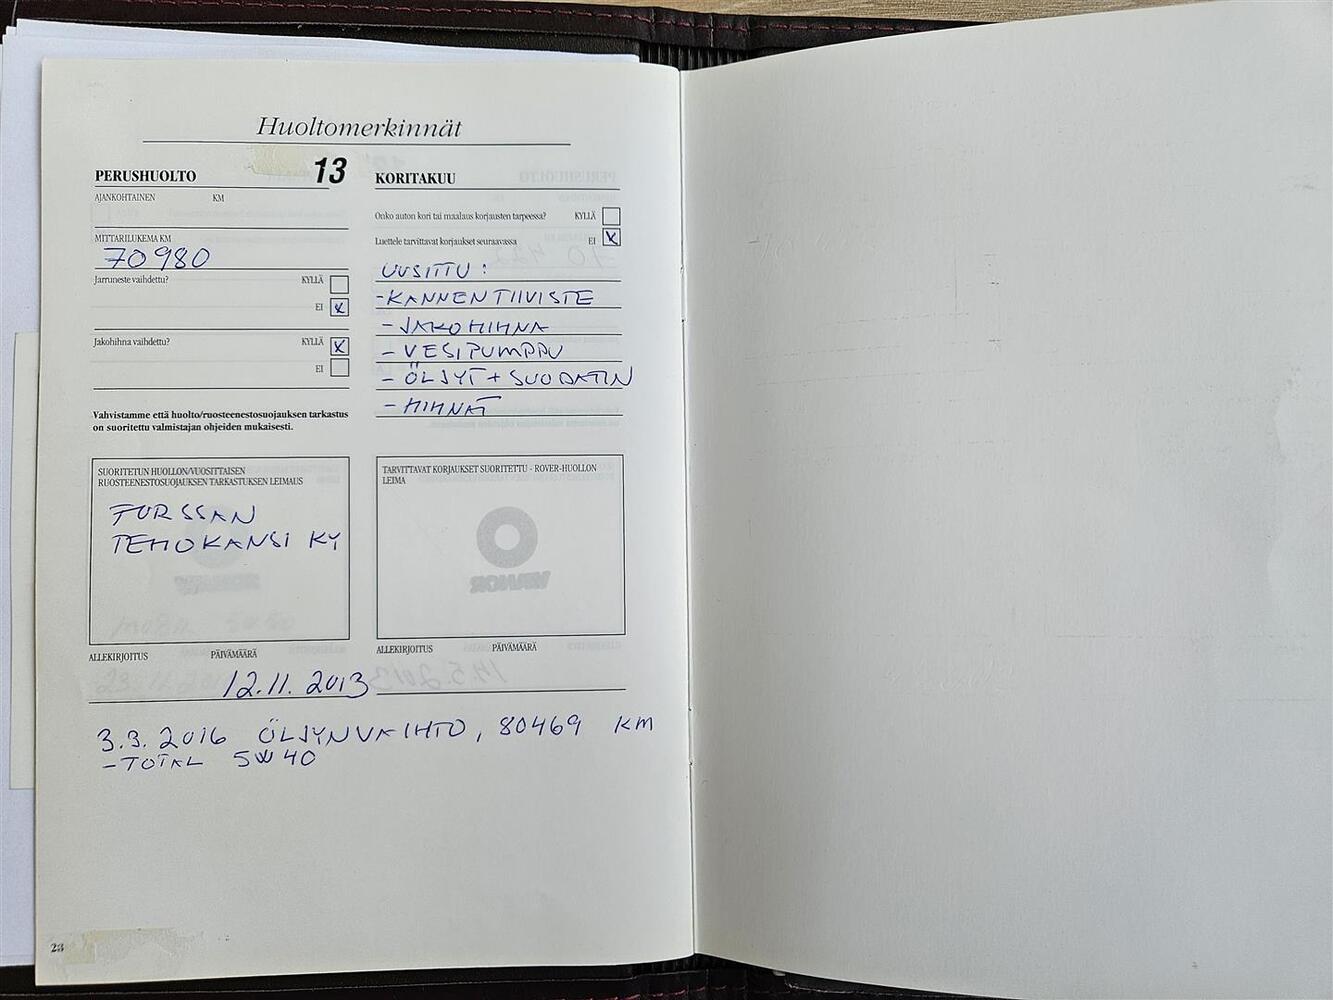 Huoltomerkinnät
PERUSHUOLTO 13
AJANKOHTAINEN KM
MITTARILUKEMA KM
70980
Jarruneste vaihdettu? KYLLÄ
EI X
Jakohihna vaihdettu? KYLLÄ X
EI
Vahvistamme että huolto/ruosteenestosuojauksen tarkastus
on suoritettu valmistajan ohjeiden mukaisesti.
SUORITETUN HUOLLON/VUOSITTAISEN
RUOSTEENESTOSUOJAUKSEN TARKASTUKSEN LEIMAUS
FORSSAN
TEHOKANSI KY
ALLEKIRJOITUS PÄIVÄMÄÄRÄ
12.11. 2013
KORITAKUU
Onko auton kori tai maalaus korjausten tarpeessa? KYLLÄ
Luettele tarvittavat korjaukset seuraavassa EI X
UUSITTU :
- KANNENTIIVISTE
- JAKOHIHNA
- VESIPUMPPU
- ÖLJYT + SUODATIN
- HIHNAT
TARVITTAVAT KORJAUKSET SUORITETTU - ROVER-HUOLLON
LEIMA
ALLEKIRJOITUS PÄIVÄMÄÄRÄ
3.3. 2016 ÖLJYNVAIHTO, 80469 KM
- TOTAL 5W40
23